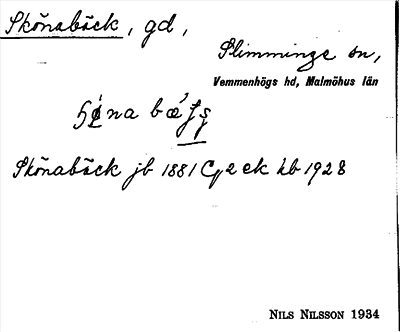 Skönabäck, gd,
Slimminge sn,
Vemmenhögs hd, Malmöhus län
Skönabäck jb 1881 C 2 ek kb 1928
NILS NILSSON 1934